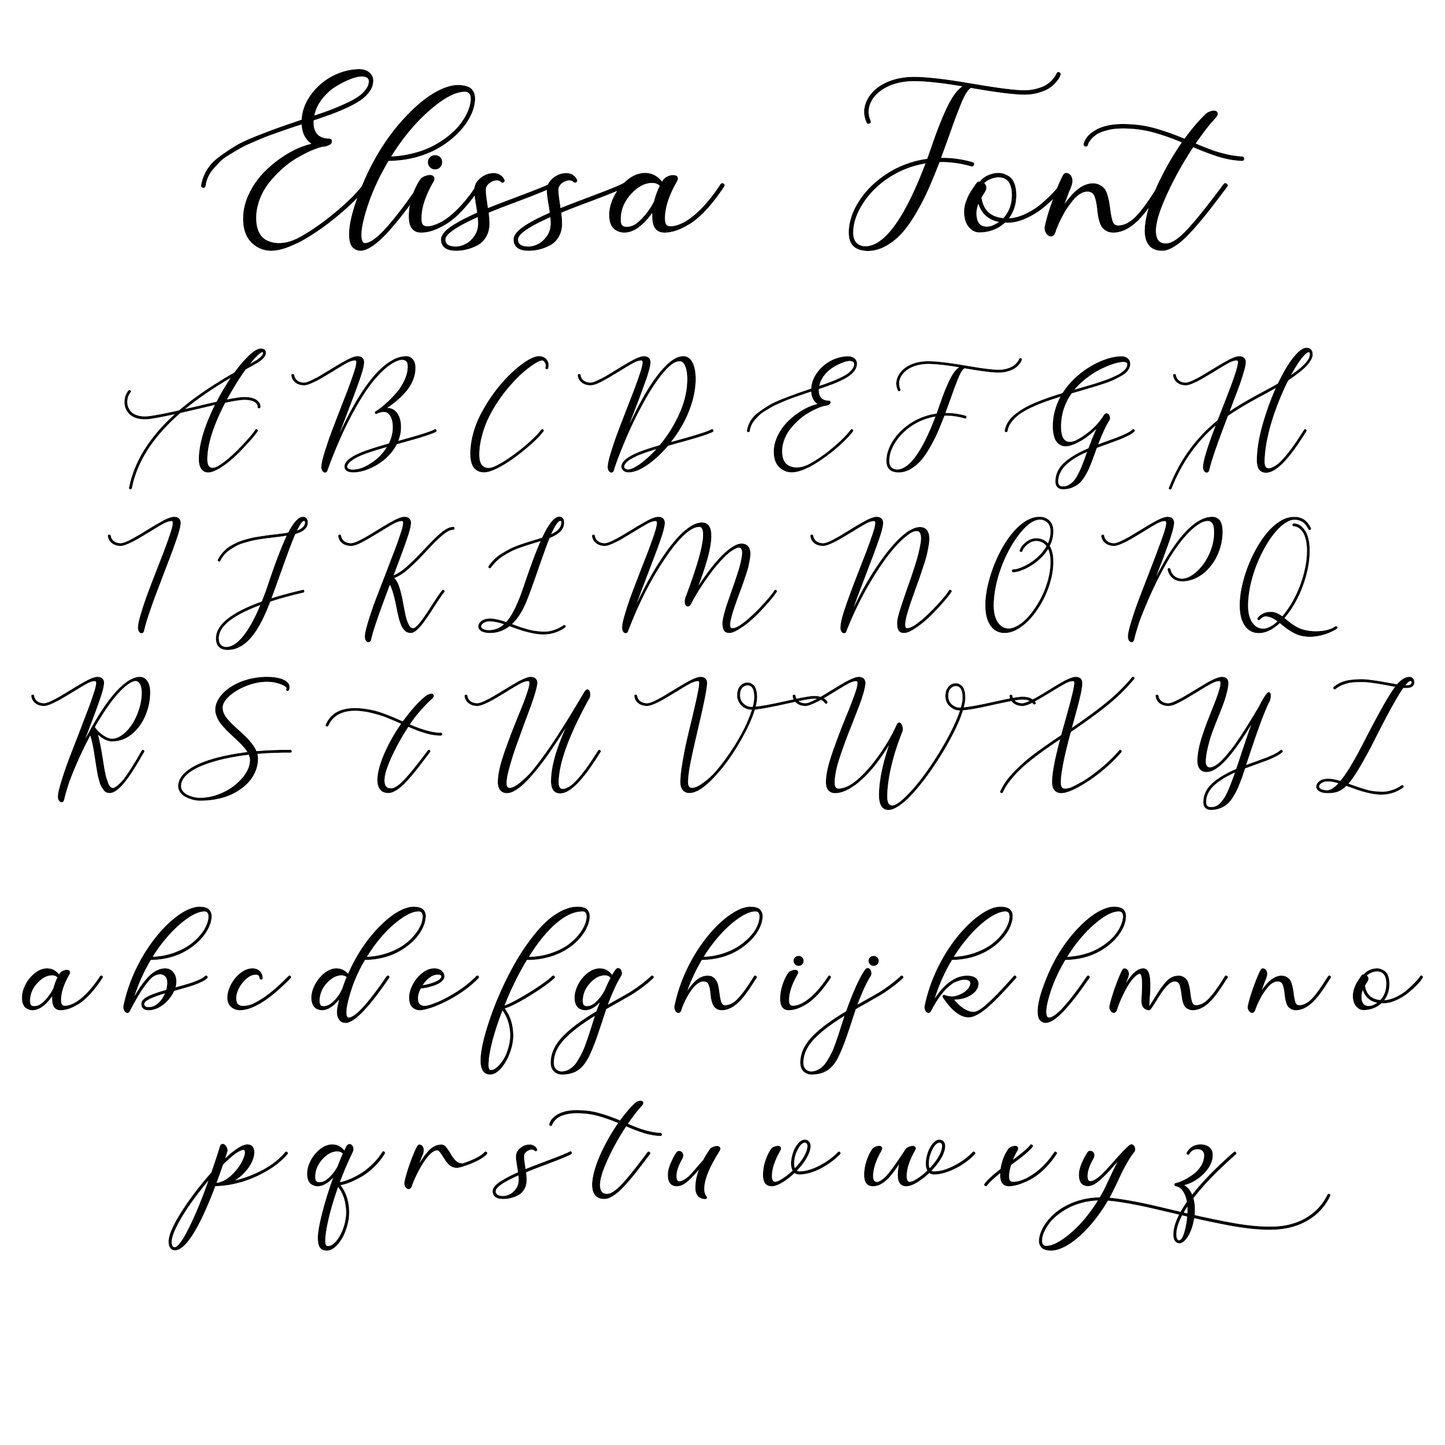 Elissa Font
A B C D E F G H
I J K L M N O P Q
R S t U V W X Y Z
a b c d e f g h i j k l m n o
p q r s t u v w x y z